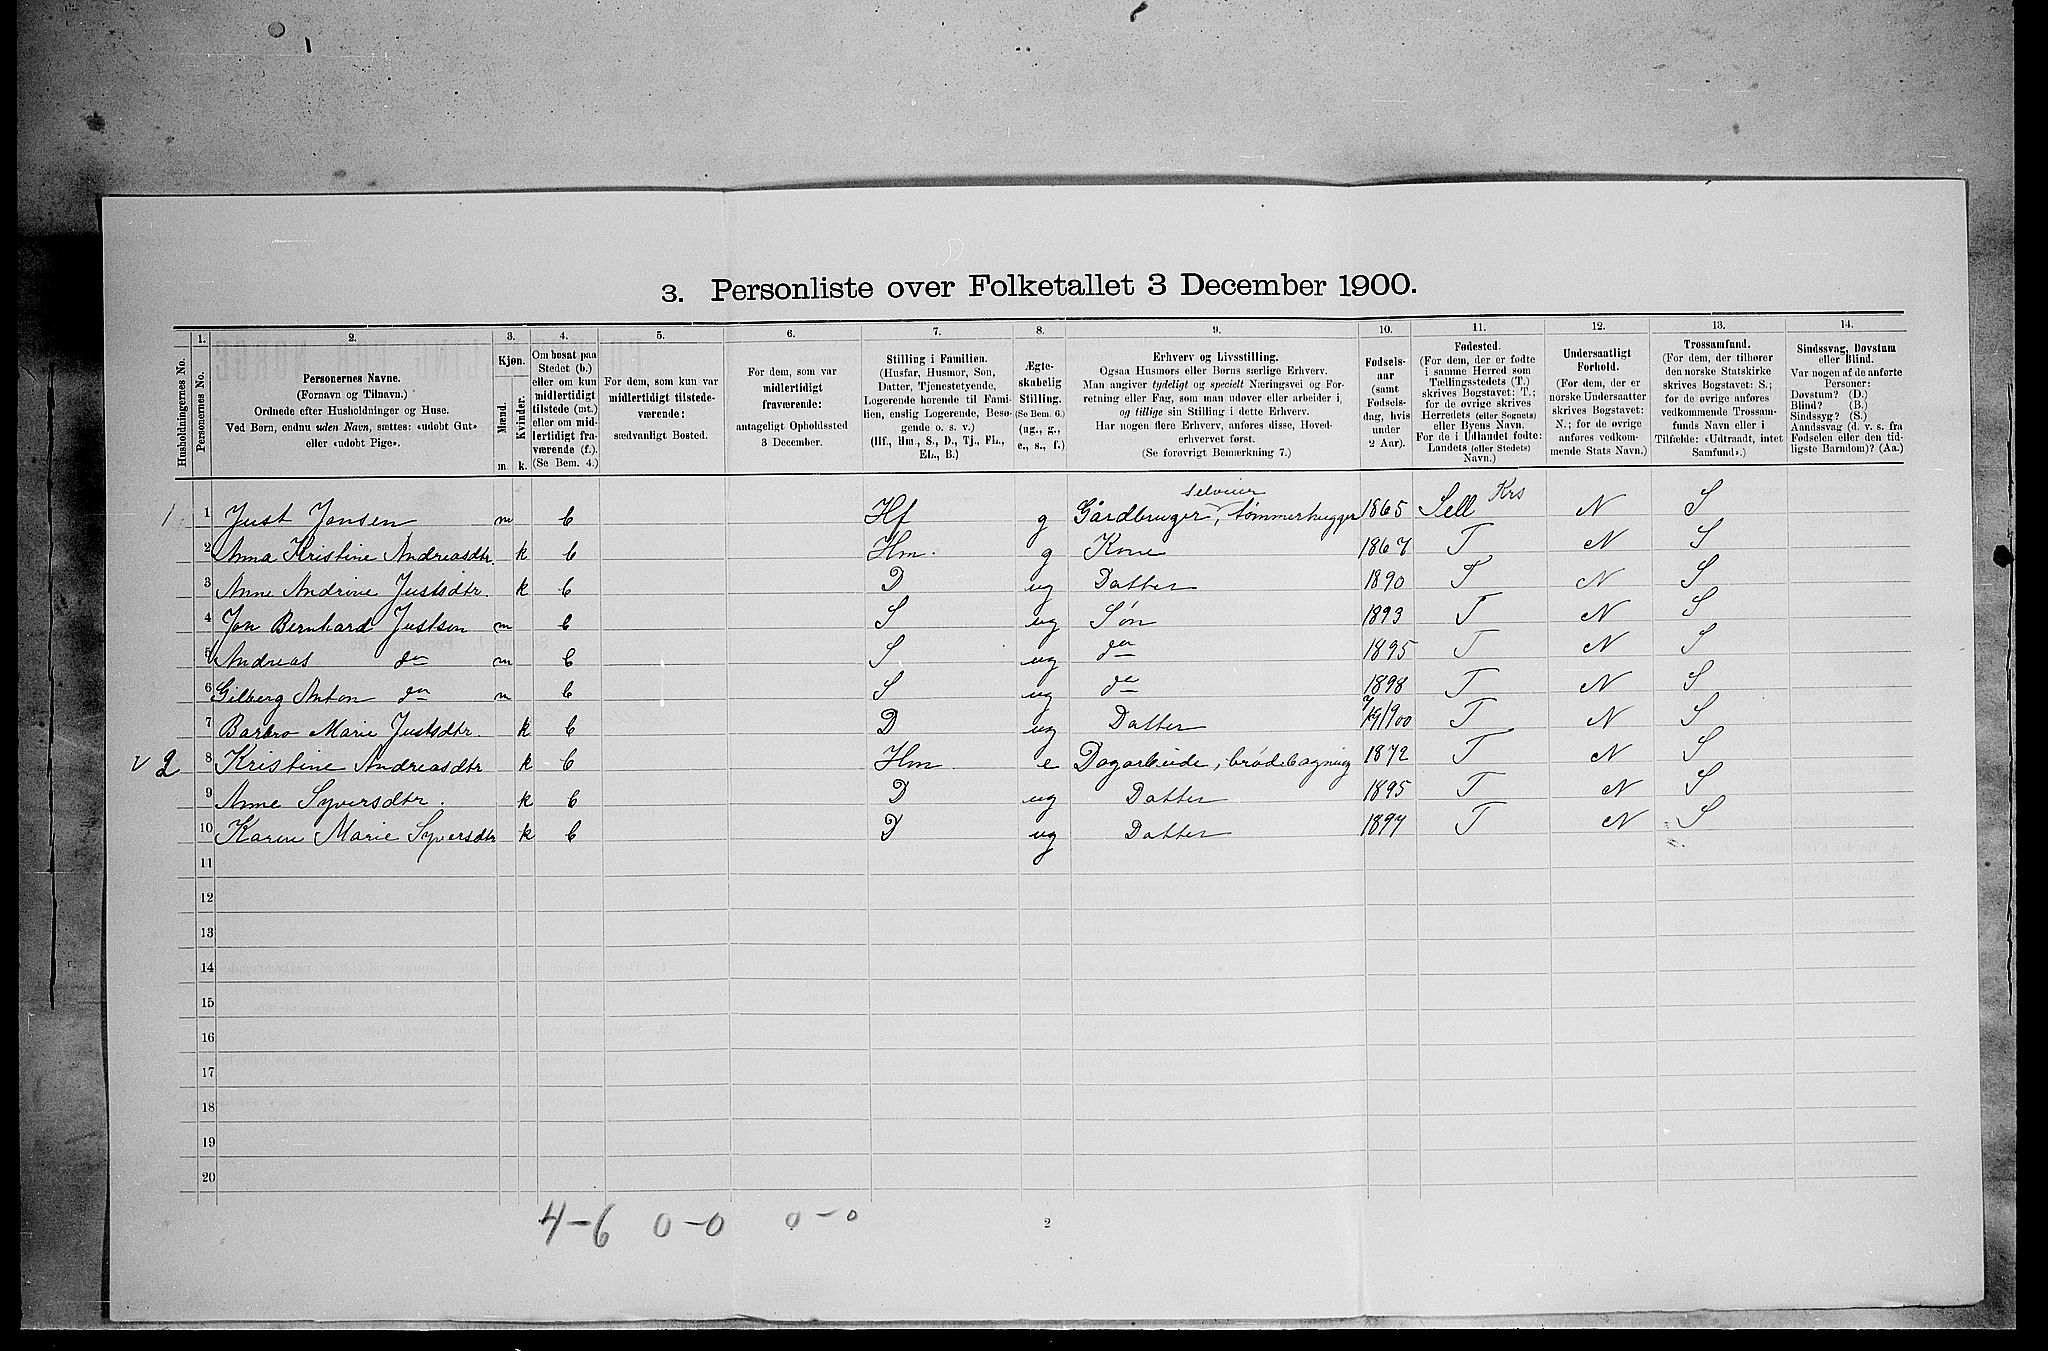 3. Personliste over Folketallet 3 December 1900.
1. 2. 3. 4. 5. 6. 7. 8. 9. 10. 11. 12. 13. 14.
Husholdningernes No.
Personernes No.
Personernes Navne.
(Fornavn og Tilnavn.)
Ordnede efter Husholdninger og Huse.
Ved Børn, endnu uden Navn, sættes: «udøbt Gut»
eller «udøbt Pige».
Kjøn.
Mænd.
Kvinder.
m k.
Om bosat paa
Stedet (b.)
eller om kun
midlertidigt
tilstede (mt.)
eller om mid-
lertidigt fra-
værende (f.).
(Se Bem. 4.)
For dem, som kun var
midlertidigt tilstede-
værende:
sædvanligt Bosted.
For dem, som var
midlertidigt
fraværende:
antageligt Opholdssted
3 December.
Stilling i Familien.
(Husfar, Husmor, Søn,
Datter, Tjenestetyende,
Logerende hørende til Fami-
lien, enslig Logerende, Besø-
gende o. s. v.)
(Hf., Hm., S., D., Tj., FL.,
EL., B.)
Ægte-
skabelig
Stilling.
(Se Bem. 6.)
(ug., g.,
e., s., f.)
Erhverv og Livsstilling.
Ogsaa Husmors eller Børns særlige Erhverv.
Man angiver tydeligt og specielt Næringsvei og For-
retning eller Fag, som man udøver eller arbeider i,
og tillige sin Stilling i dette Erhverv.
Har nogen flere Erhverv, anføres disse, Hoved-
erhvervet først.
(Se forøvrigt Bemærkning 7.)
Fødsels-
aar
(samt
Fødsels-
dag, hvis
under
2 Aar).
Fødested.
(For dem, der er fødte
i samme Herred som
Tællingsstedets (T.)
skrives Bogstavet: T.;
for de øvrige skrives
Herredets (eller Sognets)
eller Byens Navn.
For de i Udlandet fødte:
Landets (eller Stedets)
Navn.)
Undersaatligt
Forhold.
(For dem, der er
norske Undersaatter
skrives Bogstavet:
N.; for de øvrige
anføres vedkom-
mende Stats Navn.)
Trossamfund.
(For dem, der tilhører
den norske Statskirke
skrives Bogstavet: S.;
for de øvrige anføres
vedkommende Trossam-
funds Navn eller i
Tilfælde: «Udtraadt, intet
Samfund».)
Sindssvag, Døvstum
eller Blind.
Var nogen af de anførte
Personer:
Døvstum? (D.)
Blind? (B.)
Sindssyg? (S.)
Aandssvag (d. v. s. fra
Fødselen eller den tid-
ligste Barndom)? (Aa.)
1 1 Just Jonsen m b Hf g Gårdbruger, selveier tømmerhugger 1865 Sell Krs N S
2 Anna Kristine Andreasdtr. k b Hm. g Kone 1867 T N S
3 Anne Andrine Justsdtr. k b D ug Datter 1890 T N S
4 Jon Bernhard Justsen m b S ug Søn 1893 T N S
5 Andreas do m b S ug do 1895 T N S
6 Gilberg Anton do m b S ug do 1898 T N S
7 Barbro Marie Justsdtr. k b D ug Datter 1900 T N S
v 2 8 Kristine Andreasdtr k b Hm e Dagarbeide, brødbagning 1872 T N S
9 Anne Syversdtr. k b D ug Datter 1895 T N S
10 Karen Marie Syversdtr k b D ug Datter 1897 T N S
11 ug
12
13
14
15
16
17
18
19
20
4-6 0-0 0-0
2